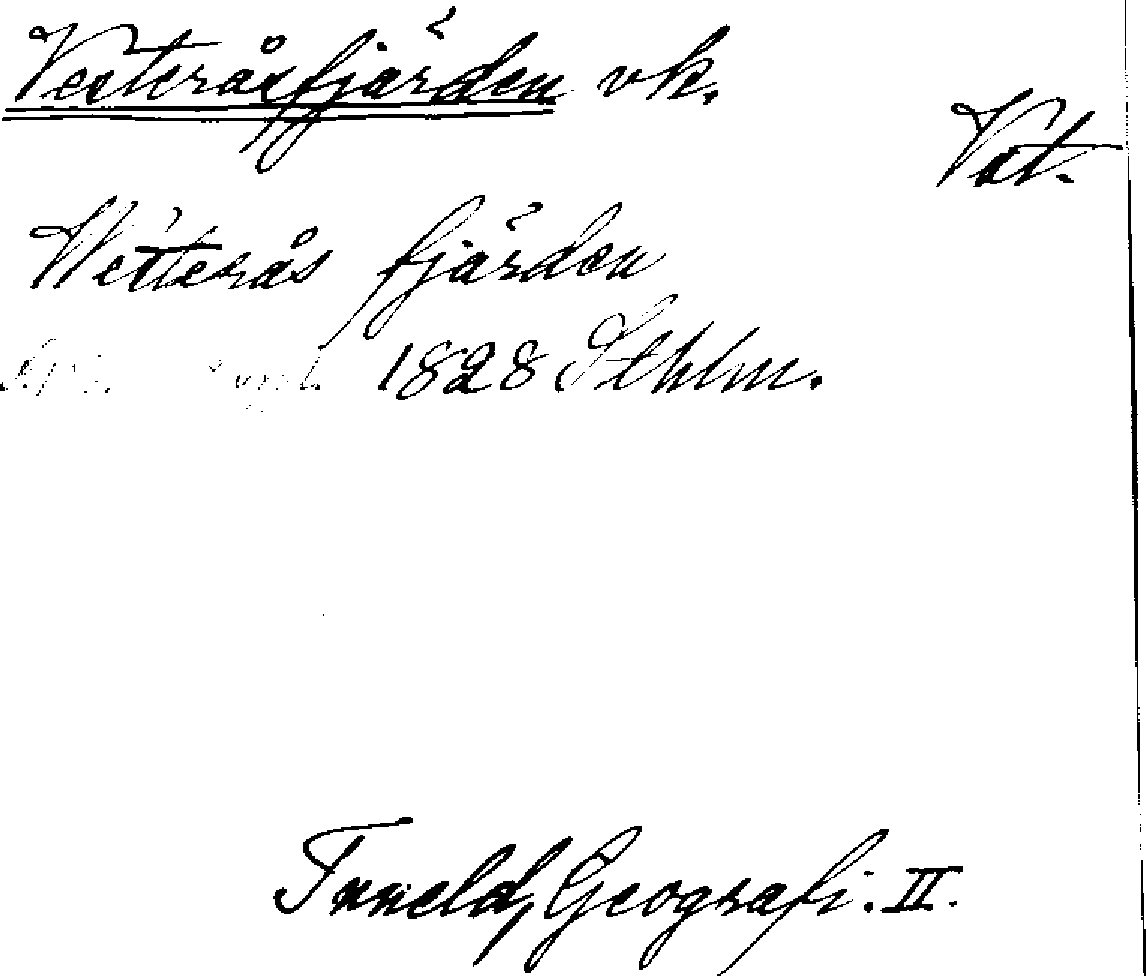 Vesteråsfjärden vk.
Vät.
Westerås fjärden
1828 Sthlm.
Tuneld, Geografi. II.